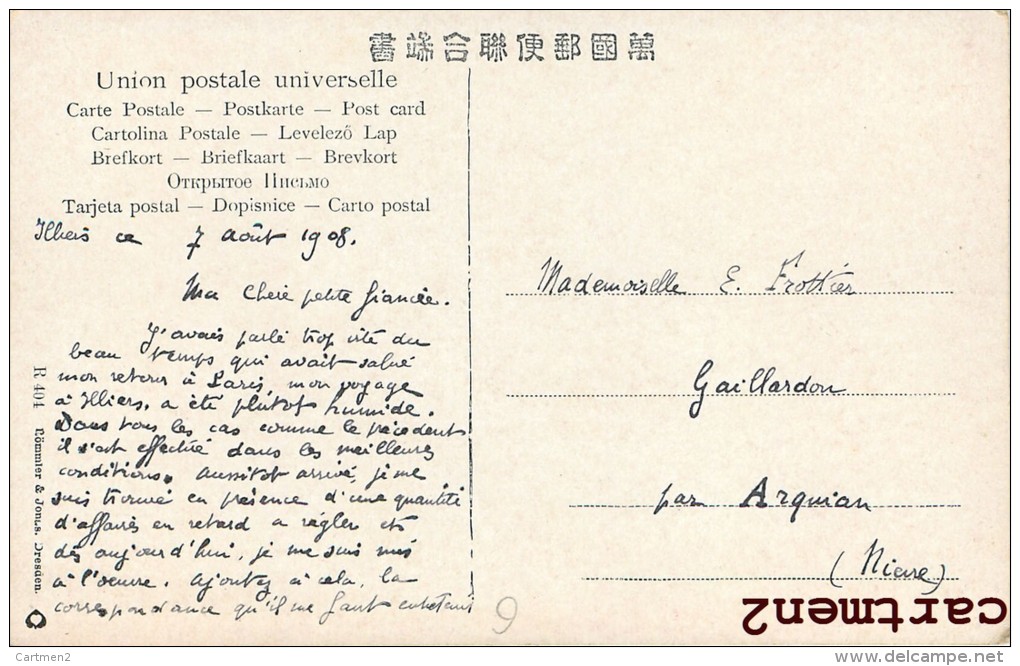 萬國郵便聯合端書
Union postale universelle
Carte Postale — Postkarte — Post card
Cartolina Postale — Levelező Lap
Brefkort — Briefkaart — Brevkort
Открытое Письмо
Tarjeta postal — Dopisnice — Carto postal
Illiers ce 7 août 1908.
Ma chère petite fiancée.
J'avais parlé trop vite du
beau temps qui avait salué
mon retour à Paris, mon voyage
à Illiers, a été plutôt humide.
Dans tous les cas comme le précédent
il s'est effectué dans les meilleures
conditions. Aussitôt arrivé, je me
suis trouvé en présence d'une quantité
d'affaires en retard a régler et
dès aujourd'hui, je me suis mis
à l'oeuvre. Ajoutez à cela, la
correspondance qu'il me faut
R 404 Römmler & Jonas. Dresden.
Mademoiselle E. Frottier
Gaillardon
par Arquian
(Nièvre)
6
cartmen2
Cartmen2
http://www.delcampe.net